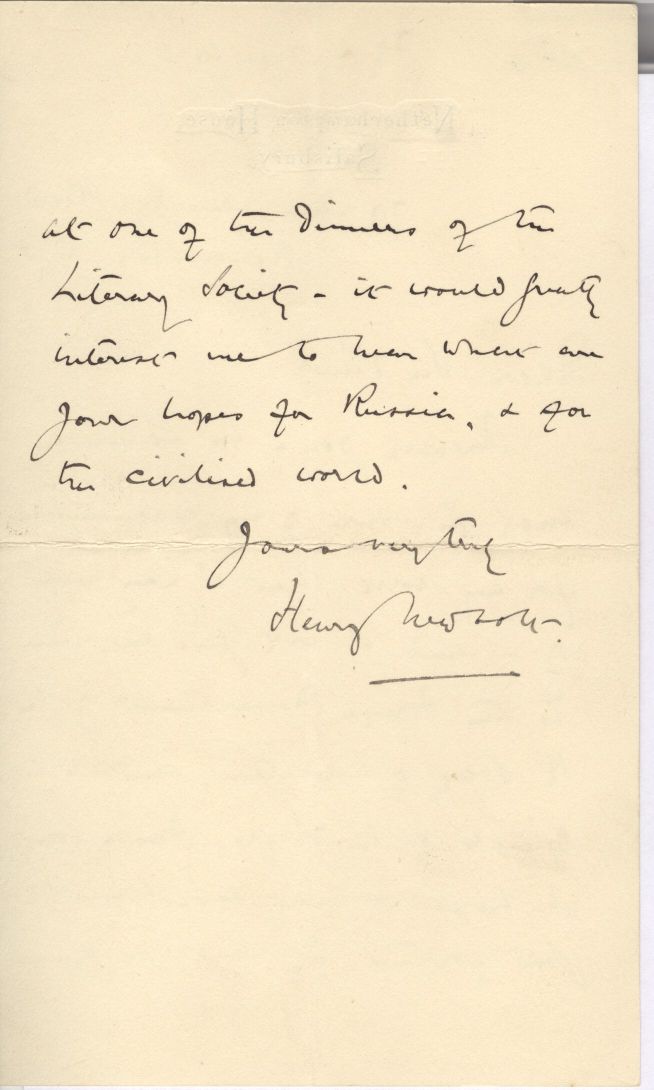 Netherhampton House
Salisbury
at one of the Dinners of the
Literary Society - it would greatly
interest me to hear what are
your hopes for Russia, & for
the civilised world.
Yours very truly
Henry Newbolt.